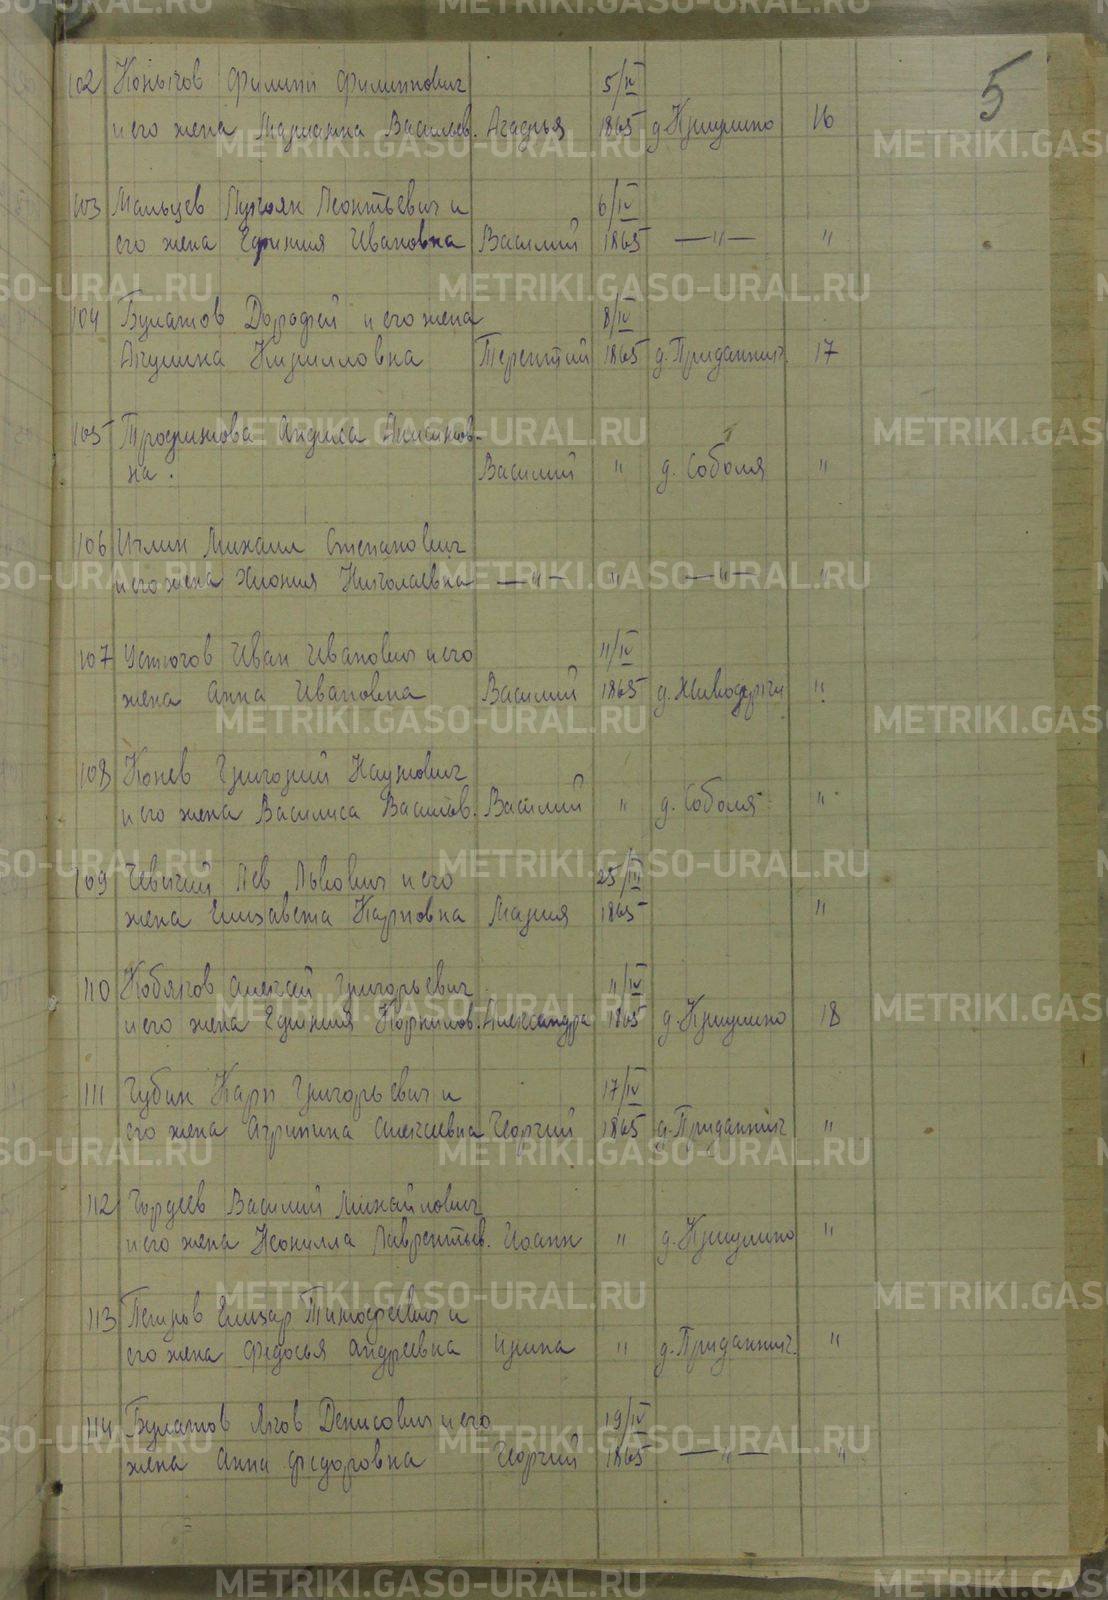 5
102 Конычов Филипп Филиппович 5/IV
и его жена Марианна Васильев. Агафья 1865 д. Криулино 16
103 Мальцев Лукоян Леонтьевич и 6/IV
его жена Ефимия Ивановна Василий 1865 —"— "
104 Булатов Дорофей и его жена 8/IV
Акулина Кирилловна Терентий 1865 д. Приданник. 17
105 Трофимова Анфиса Акинфов-
на. Василий " д. Соболя "
106 Иглин Михаил Степанович
и его жена Хиония Николаевна —"— " —"— "
107 Устюгов Иван Иванович и его 11/IV
жена Анна Ивановна Василий 1865 д. Живодерки "
108 Конев Григорий Наумович
и его жена Василиса Васильев. Василий " д. Соболя "
109 Лев Львович и его 25/III
жена Елизавета Карповна Мария 1865 "
110 Кобяков Алексей Григорьевич 11/IV
и его жена Ефимия Корнилов. Александра 1865 д. Криулино 18
111 Губин Карп Григорьевич и 17/IV
его жена Агрипина Алексеевна Георгий 1865 д. Приданник "
112 Гордеев Василий Михайлович
и его жена Неонилла Лаврентьев. Иоанн " д. Криулино "
113 Петров Елизар Тимофеевич и
его жена Федосья Андреевна Ирина " д. Приданник. "
114 Булатов Яков Денисович и его 19/IV
жена Анна Федоровна Георгий 1865 —"— "
METRIKI.GASO-URAL.RU